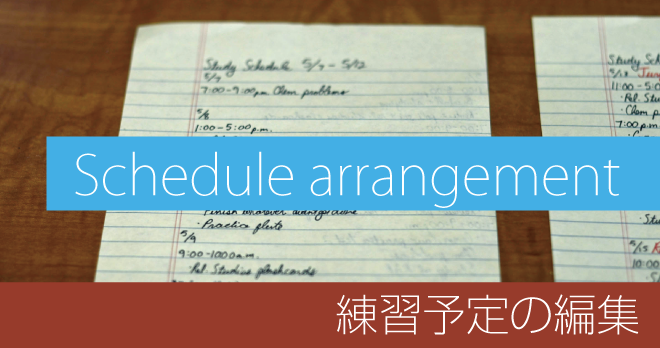 Study Schedule 5/7 - 5/12
5/7
7:00-9:00pm Chem problems
5/8
1:00-5:00p.m.
Schedule arrangement
Finish whatever didn't get done
· Practice flute
5/9
9:00-10:00a.m.
· Pol. Studies flashcards
Study Sch
5/13
11:00-5:0
· Pol. Stu
· Chem p
7:00 p.m
· Stu
5/15
10:00
練習予定の編集